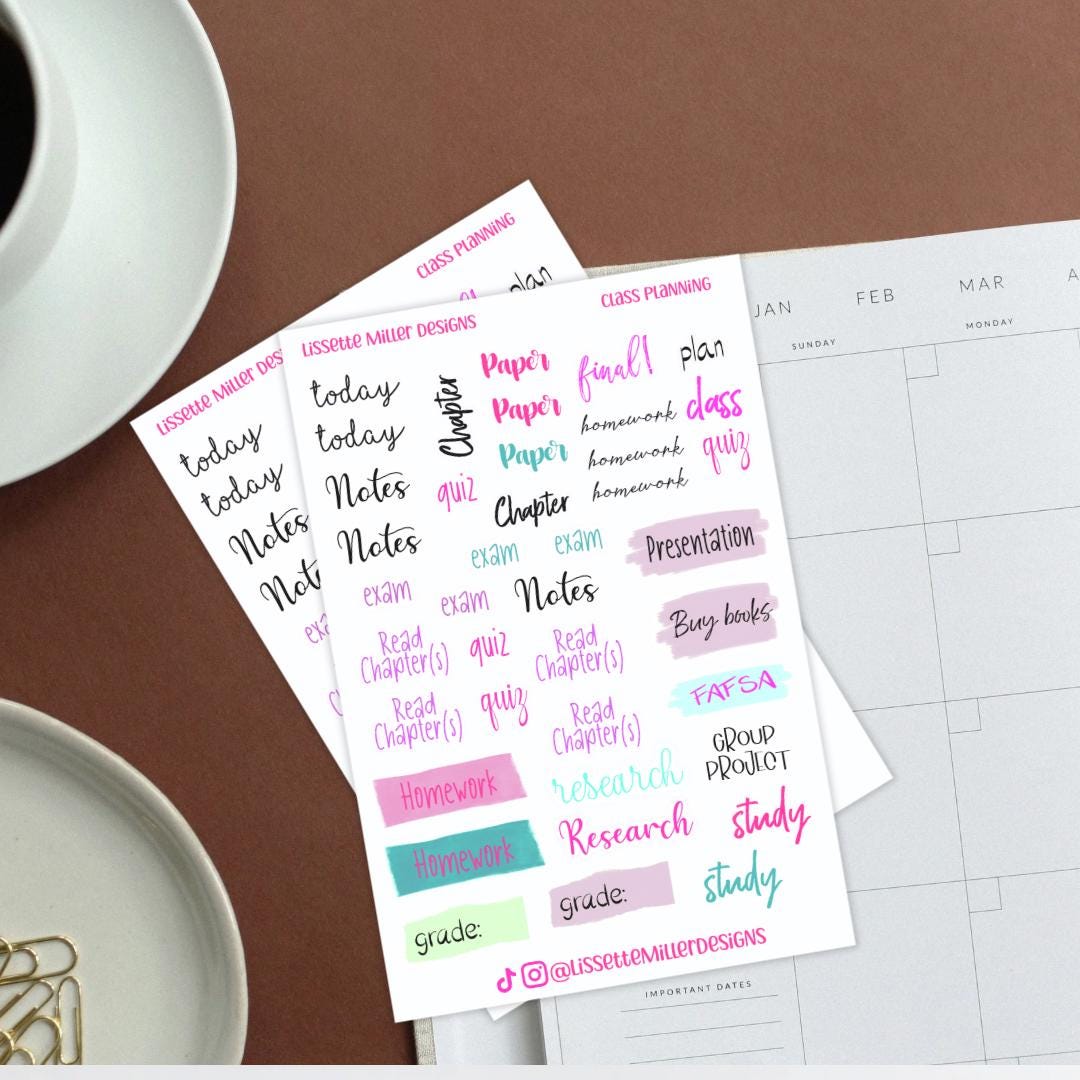 CLASS PLANNING
plan
Lissette Miller Des
today
today
Notes
Lissette Miller Designs
CLASS PLANNING
today
today
Notes
Notes
Chapter
Paper
Paper
Paper
final!
plan
homework
class
homework
quiz
homework
quiz
Chapter
exam
exam
Presentation
exam
exam
Notes
Buy books
Read
Chapter(s)
quiz
Read
Chapter(s)
FAFSA
Read
Chapter(s)
quiz
Read
Chapter(s)
GROUP
PROJECT
Homework
research
Homework
Research
study
grade:
grade:
study
@LissetteMillerDesigns
JAN FEB MAR A
SUNDAY MONDAY
IMPORTANT DATES